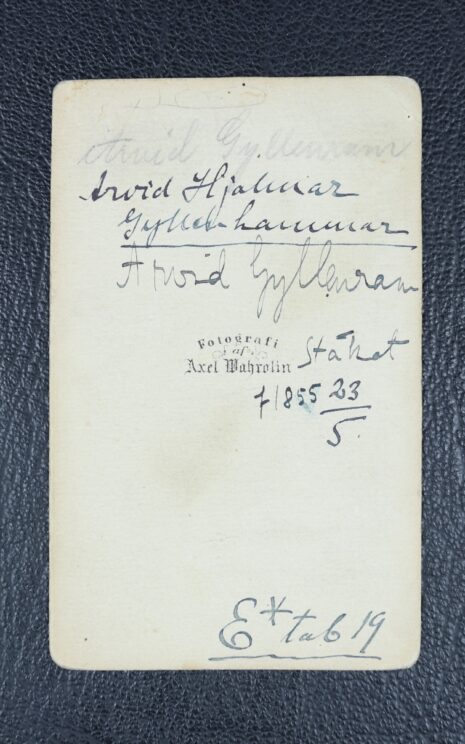 Arvid Gyllenram
Arvid Hjalmar
Gyllenhammar
Arvid Gyllenram
Fotografi
af
Axel Wahrolin
Ståket
f 1855 23/5.
E* tab 19